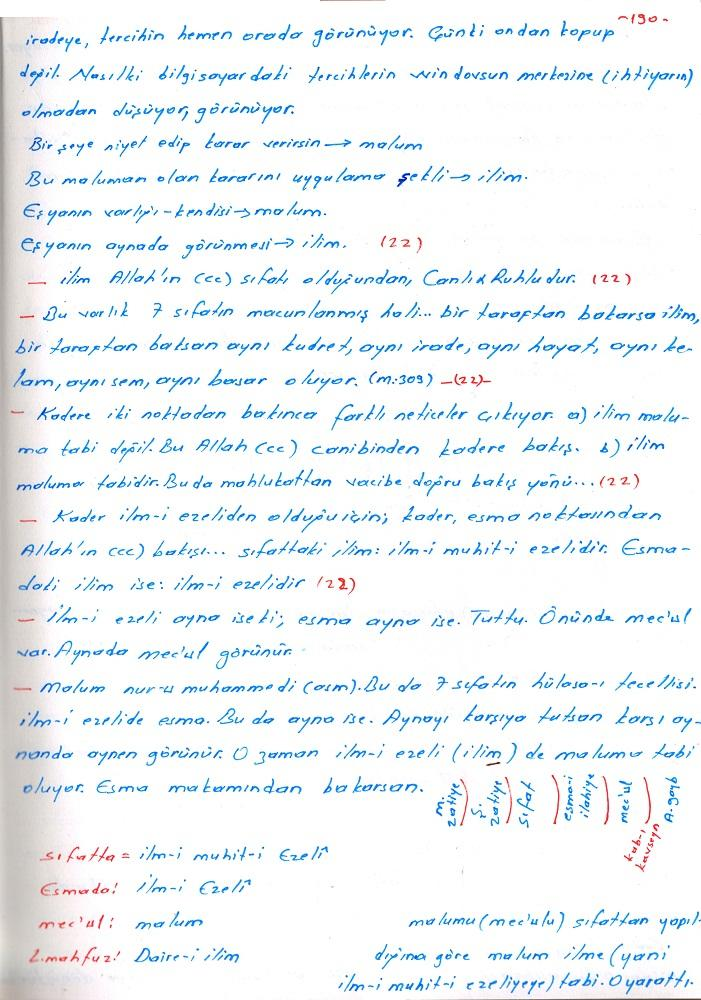 -190-
iradeye, tercihin hemen orada görünüyor. Çünki ondan kopup
değil. Nasılki bilgisayardaki tercihlerin windovsun merkezine (ihtiyarın)
olmadan düşüyor, görünüyor.
Bir şeye niyet edip karar verirsin → malum
Bu maluman olan kararını uygulama şekli → ilim.
Eşyanın varlığı - kendisi → malum.
Eşyanın aynada görünmesi → ilim. (22)
— ilim Allah'ın (cc) sıfatı olduğundan, Canlı & Ruhludur. (22)
— Bu varlık 7 sıfatın macunlanmış hali... bir taraftan bakarsa ilim,
bir taraftan baksan aynı kudret, aynı irade, aynı hayat, aynı ke-
lam, aynı sem, aynı basar oluyor. (m:309) -(22)-
— Kadere iki noktadan bakınca farklı neticeler çıkıyor. a) ilim malu-
ma tabi değil. Bu Allah (cc) canibinden kadere bakış. b) ilim
maluma tabidir. Buda mahlukattan vacibe doğru bakış yönü... (22)
— Kader ilm-i ezeliden olduğu için; kader, esma noktasından
Allah'ın (cc) bakışı... sıfattaki ilim: ilm-i muhit-i ezelidir. Esma-
daki ilim ise: ilm-i ezelidir (22)
— İlm-i ezeli ayna ise ki; esma ayna ise. Tuttu. Önünde mec'ul
var. Aynada mec'ul görünür.
— Malum nur-u muhammedi (asm). Bu da 7 sıfatın hülasa-ı tecellisi.
ilm-i ezelide esma. Bu da ayna ise. Aynayı karşıya tutsan karşı ay-
nanda aynen görünür. O zaman ilm-i ezeli (ilim) de maluma tabi
oluyor. Esma makamından bakarsan.
m. zatiye ) ş. zatiye ) sıfat ) esma-i ilahiye ) mec'ul ) A. gayb
kab-ı kavseyn
sıfatta = ilm-i muhit-i Ezelî
Esmada: ilm-i Ezelî
mec'ul: malum
L. mahfuz: Daire-i ilim
malumu (mec'ulu) sıfattan yapıl-
dığına göre malum ilme (yani
ilm-i muhit-i ezeliyeye) tabi. O yarattı.